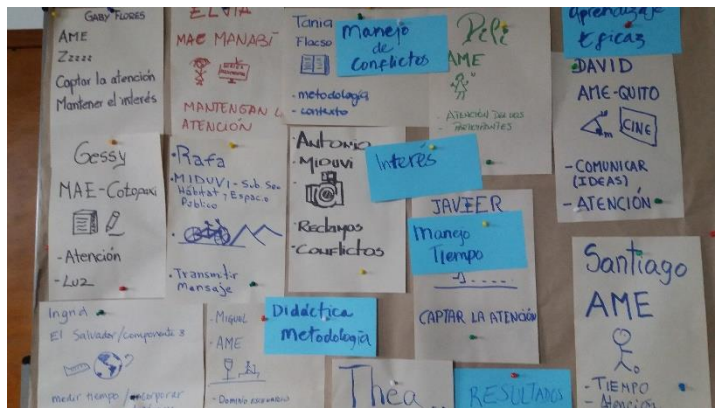 GABY FLORES
AME
Zzzzz
Captar la atención
Mantener el interés
ELVIA
MAE MANABÍ
MANTENGAN L
ATENCIÓN
Tania
Flacso
- metodología
- contexto
Manejo
de
Conflictos
Pili
AME
- ATENCIÓN DE LOS
PARTICIPANTES
Aprendizaje
Eficaz
DAVID
AME-QUITO
CINE
- COMUNICAR
(IDEAS)
- ATENCIÓN
Gessy
MAE-Cotopaxi
- Atención
- Luz
· Rafa
· MIDUVI - Sub. Se
Hábitat y Espacio
Público
· Transmitir
Mensaje
· Antonio
· MIDUVI
· Reclamos
· Conflictos
Interés
JAVIER
Manejo
Tiempo
CAPTAR LA ATENCIÓN
Santiago
AME
- TIEMPO
- Atención
Ingrid
El Salvador/componente 3
medir tiempo / incorporar
· MIGUEL
· AME
· Dominio
Didáctica
metodología
Thea
RESULTADOS